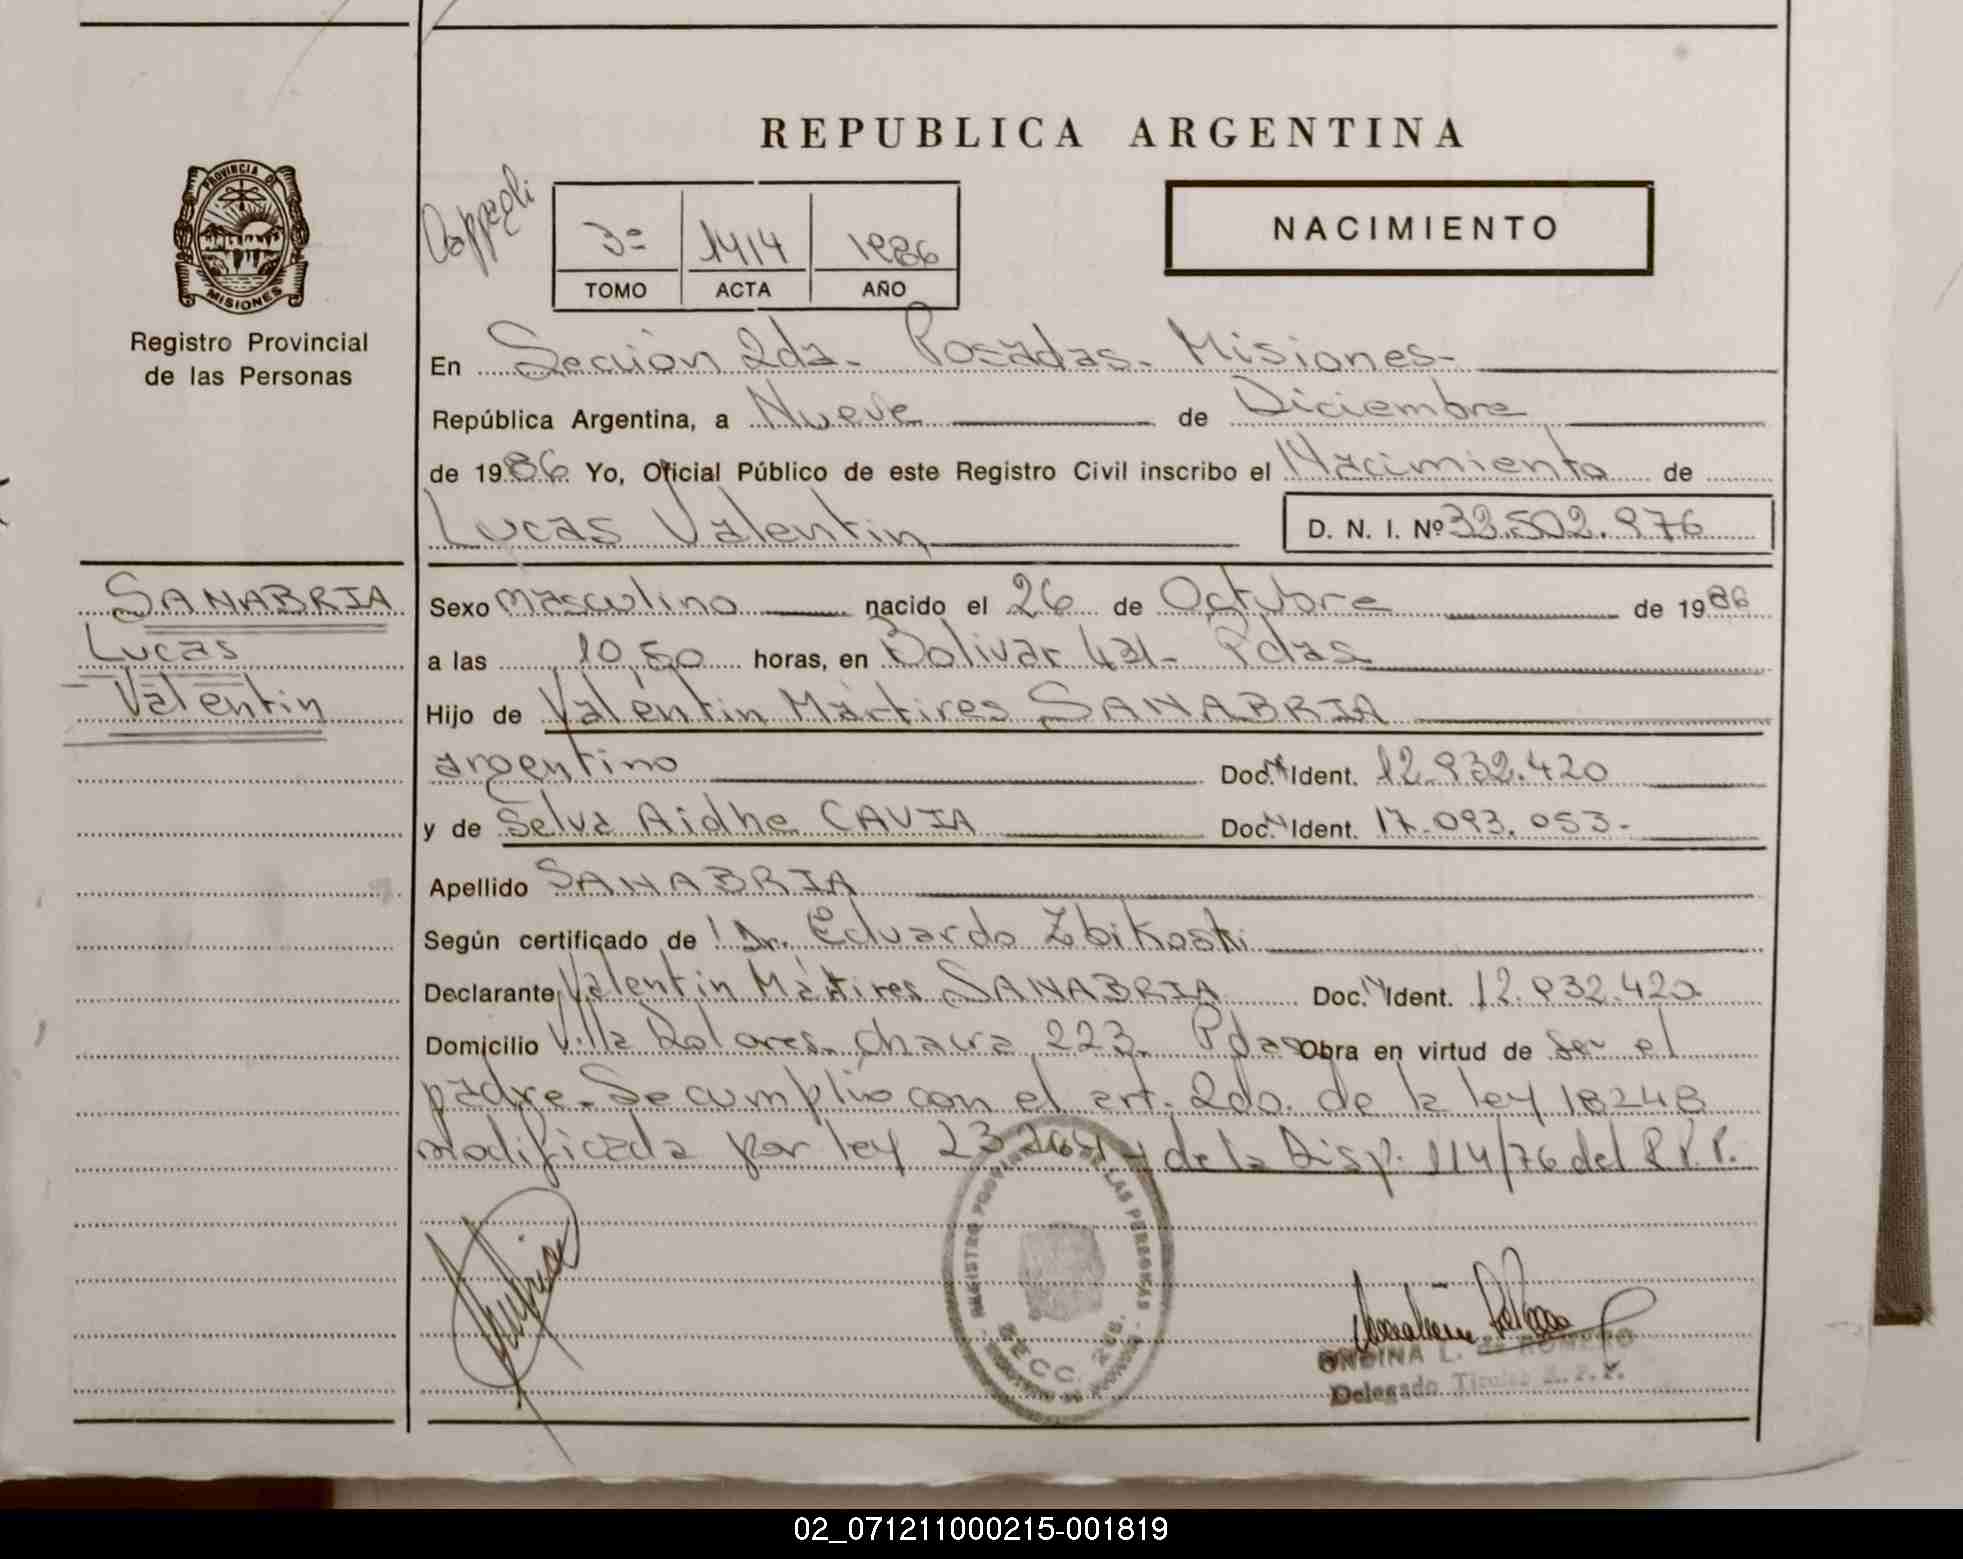 REPUBLICA ARGENTINA
PROVINCIA DE
MISIONES
Registro Provincial
de las Personas
3º 1414 1986
TOMO ACTA AÑO
NACIMIENTO
En Sección 2da- Posadas- Misiones-
República Argentina, a Nueve de Diciembre
de 1986. Yo, Oficial Público de este Registro Civil inscribo el Nacimiento de
Lucas Valentin D. N. I. Nº
SANABRIA
Lucas
Valentin
Sexo masculino nacido el 26 de Octubre de 1986
a las 10,50 horas, en Bolivar 431- Pdas
Hijo de Valentin Mártires SANABRIA
argentino Doc. Ident. 12.932.420
y de Selva Aidhe CAVIA Doc. Ident. 17.093.053-
Apellido SANABRIA
Según certificado de Dr. Eduardo Zbikoski
Declarante Valentin Mártires SANABRIA Doc. Ident. 12.932.420
Domicilio Villa Dolores- chacra 223- Pdas Obra en virtud de ser el
padre- Se cumplió con el art. 2do. de la ley 18248
modificada por ley 23264 y de la Disp. 114/76 del R.P.P.
REGISTRO PROVINCIAL DE LAS PERSONAS
SECC. 2da.
ONDINA L. de ROMERO
Delegado Titular R.P.P.
02_071211000215-001819